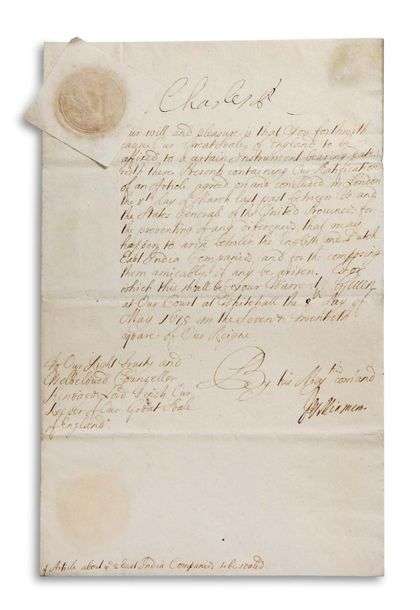 Charles R
Our will and pleasure is that you forthwith
cause Our Great Seale of England to be
affixed to a certain Instrument bearing date
with these Presents containing Our Ratification
of an Article agreed on and concluded in London
the day of March last past between Us and
the States General of the United Provinces for
the preventing of any differences that may
happen to arise betweene the English and Dutch
East India Companies, and for the composing
them amicably if any be arisen. For
which this shall be your Warrant. Given
at Our Court at Whitehall the day of
May 1675 in the Seven & twentieth
yeare of Our Reigne
To Our Right Trusty and
Welbeloved Counsellor
Heneage Lord Finch Our
Keeper of Our Great Seale
of England
By his Maj.ts Comand
J Williamson
Article about ye East India Companies to be sealed